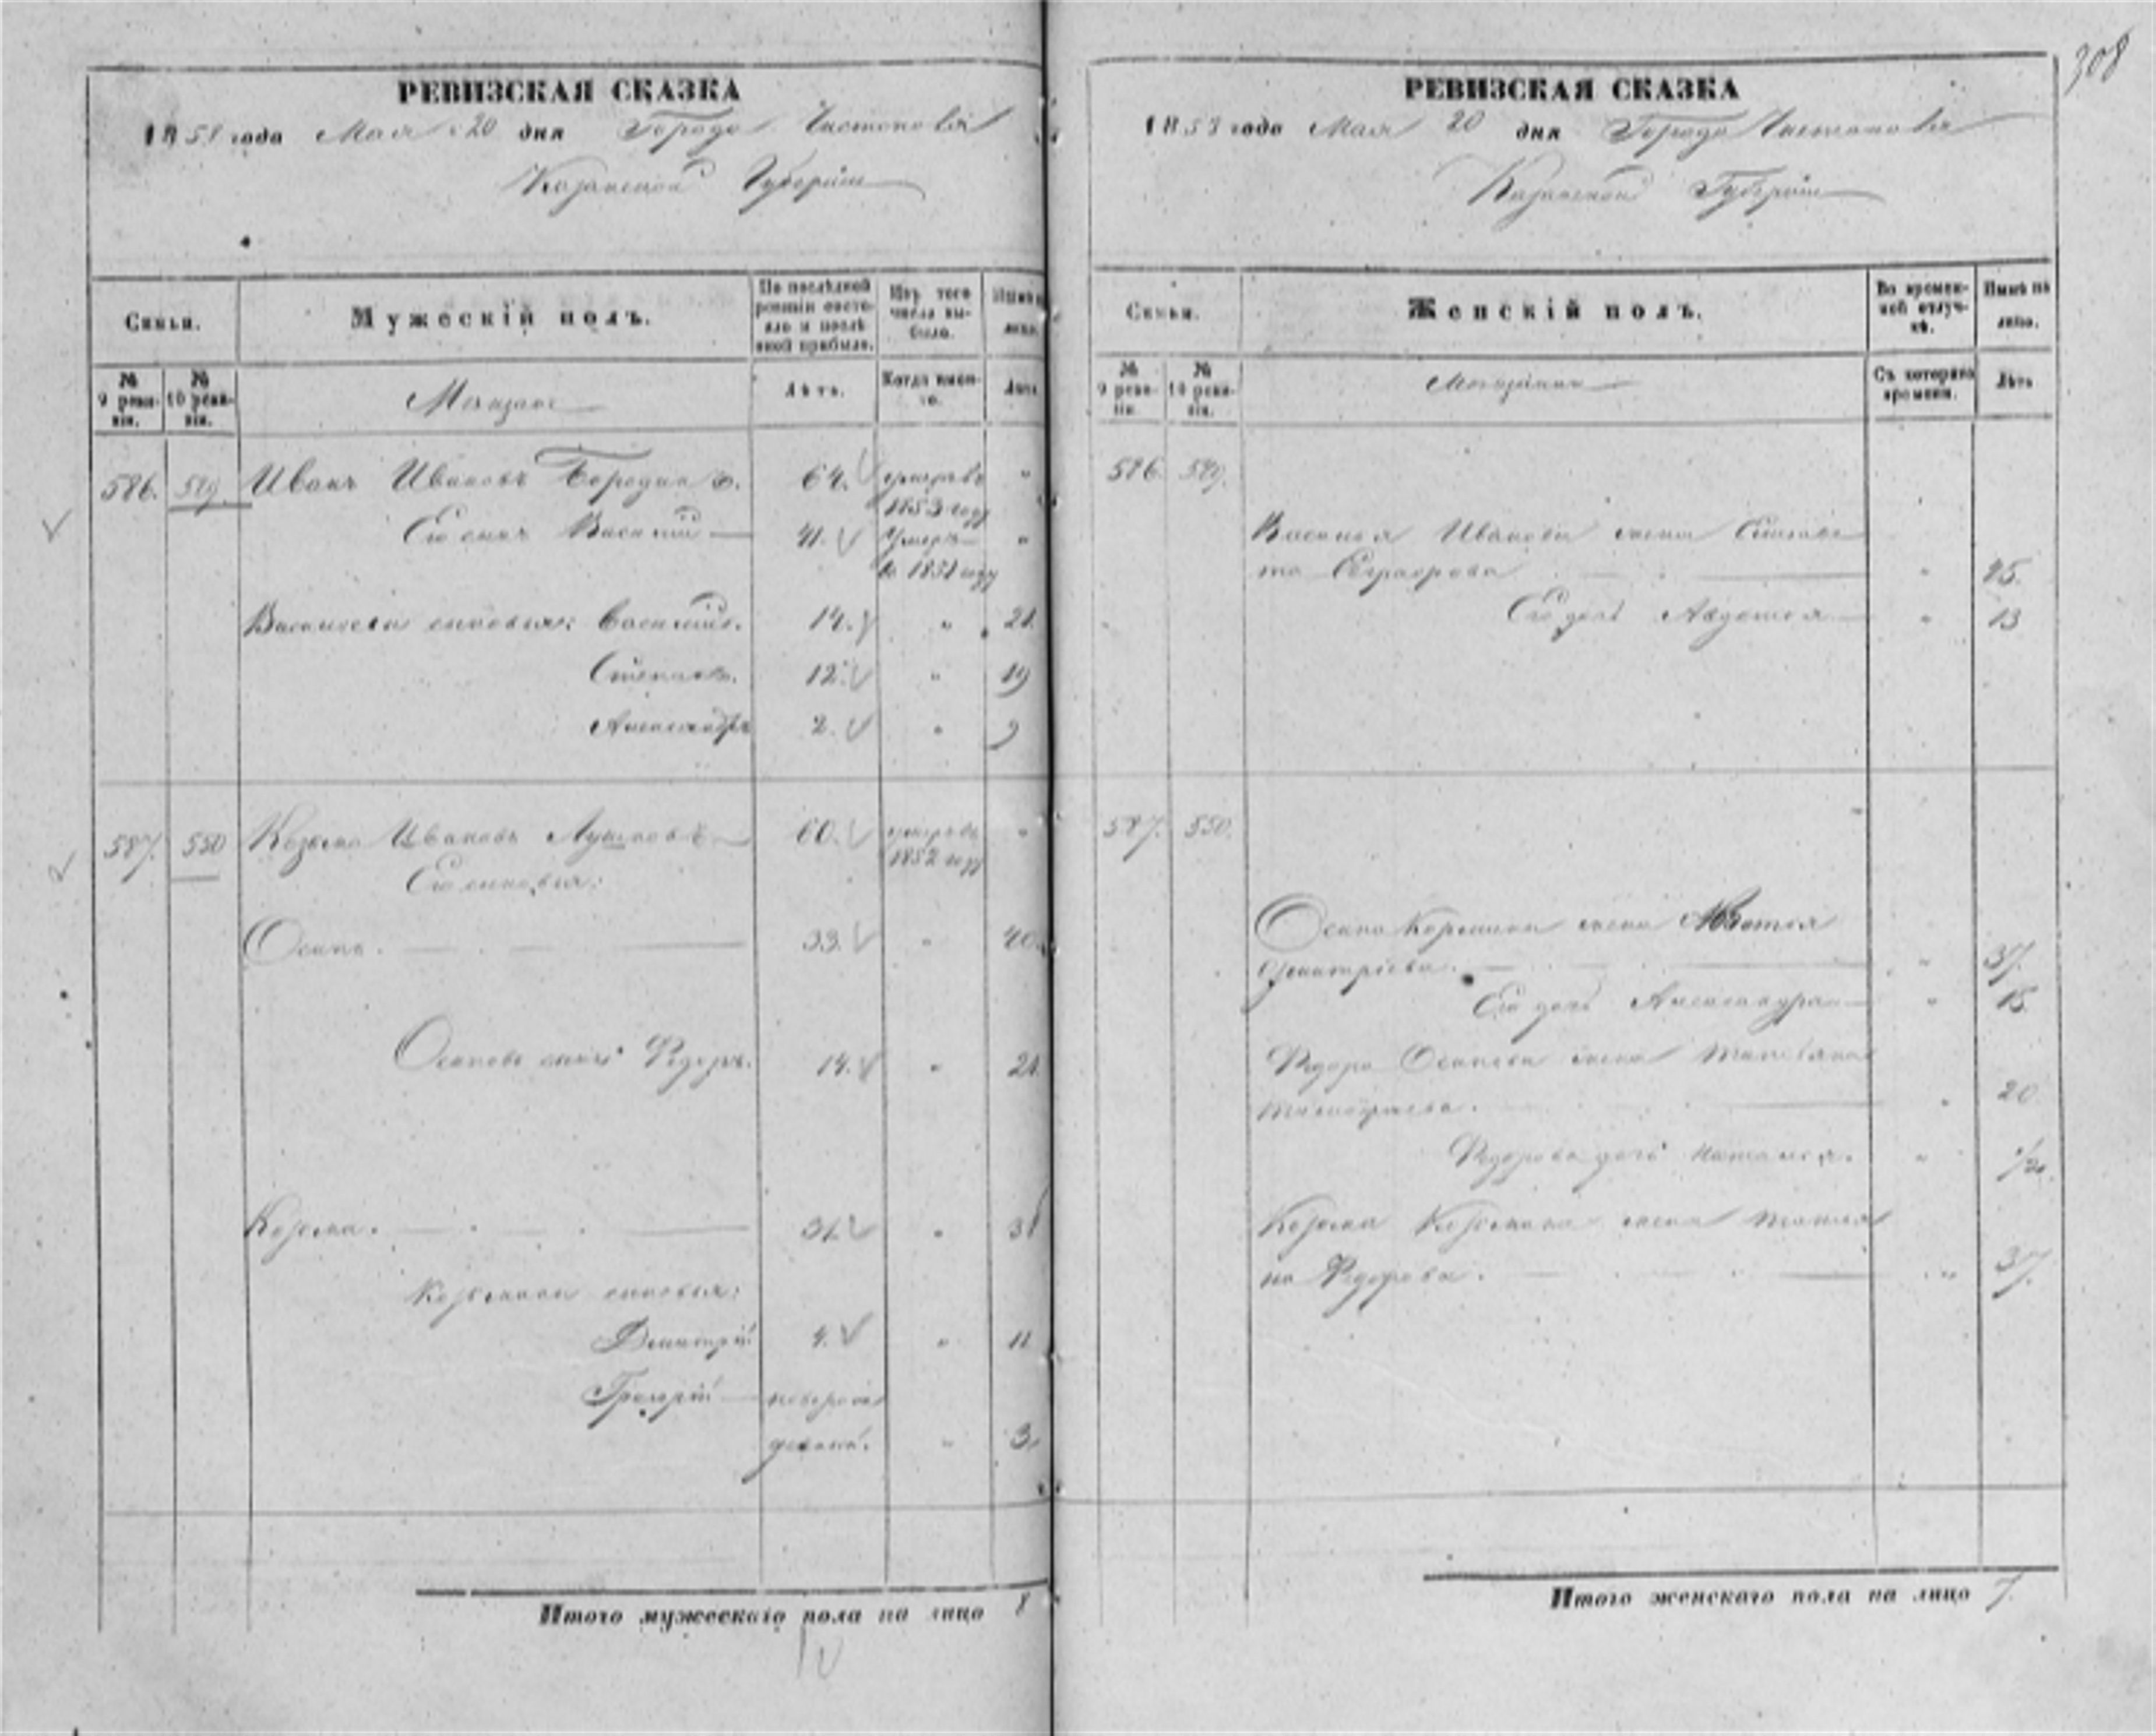 308
РЕВИЗСКАЯ СКАЗКА
1858 года Мая 20 дня Города Чистополя
Казанской Губернiи
Семьи.
Мужескiй полъ.
По послѣдней ревизiи состояло и послѣ оной прибыло.
Изъ того числа выбыло.
Нынѣ
лицо
№ 9 ревизiи.
№ 10 ревизiи.
Мещане
Лѣтъ.
Когда именно.
Лѣтъ
586. 549. Иванъ Ивановъ Бородинъ. 64. умеръ въ "
1853 году
Его сынъ Василiй 41. Умеръ "
въ 1851 году
Васильевы сыновья: Василiй. 14. " 21.
Степанъ. 12. " 19
Александръ 2. " 9
587. 550 Козьма Ивановъ 60. умеръ въ "
1852 году
Его сыновья:
Осипъ. 33. " 40.
Осиповъ сынъ Федоръ. 14. " 21.
Козьма. 31. " 38
Козьмины сыновья:
Дмитрiй 4. " 11
Григорiй новорож
денный. " 3.
Итого мужескаго пола на лицо 8
РЕВИЗСКАЯ СКАЗКА
1858 года Мая 20 дня Города Чистополя
Казанской Губернiи
Семьи.
Женскiй полъ.
Во временной отлучкѣ.
Нынѣ на лицо.
№ 9 ревизiи.
№ 10 ревизiи.
Мещанки
Съ котораго времени.
Лѣтъ
586. 549.
Василья Иванова жена Елисаве
та " 45.
Его дочь Авдотья " 13
587. 550.
Осипа Козьмина жена Авдотья
Дмитрiева. " 37.
Его дочь Александра " 15.
Федора Осипова жена Татьяна
Тимофѣева. " 20
Федорова дочь Наталья. " 1/2.
Козьмы Козьмина жена Татья
на Федорова. " 37.
Итого женскаго пола на лицо 7.